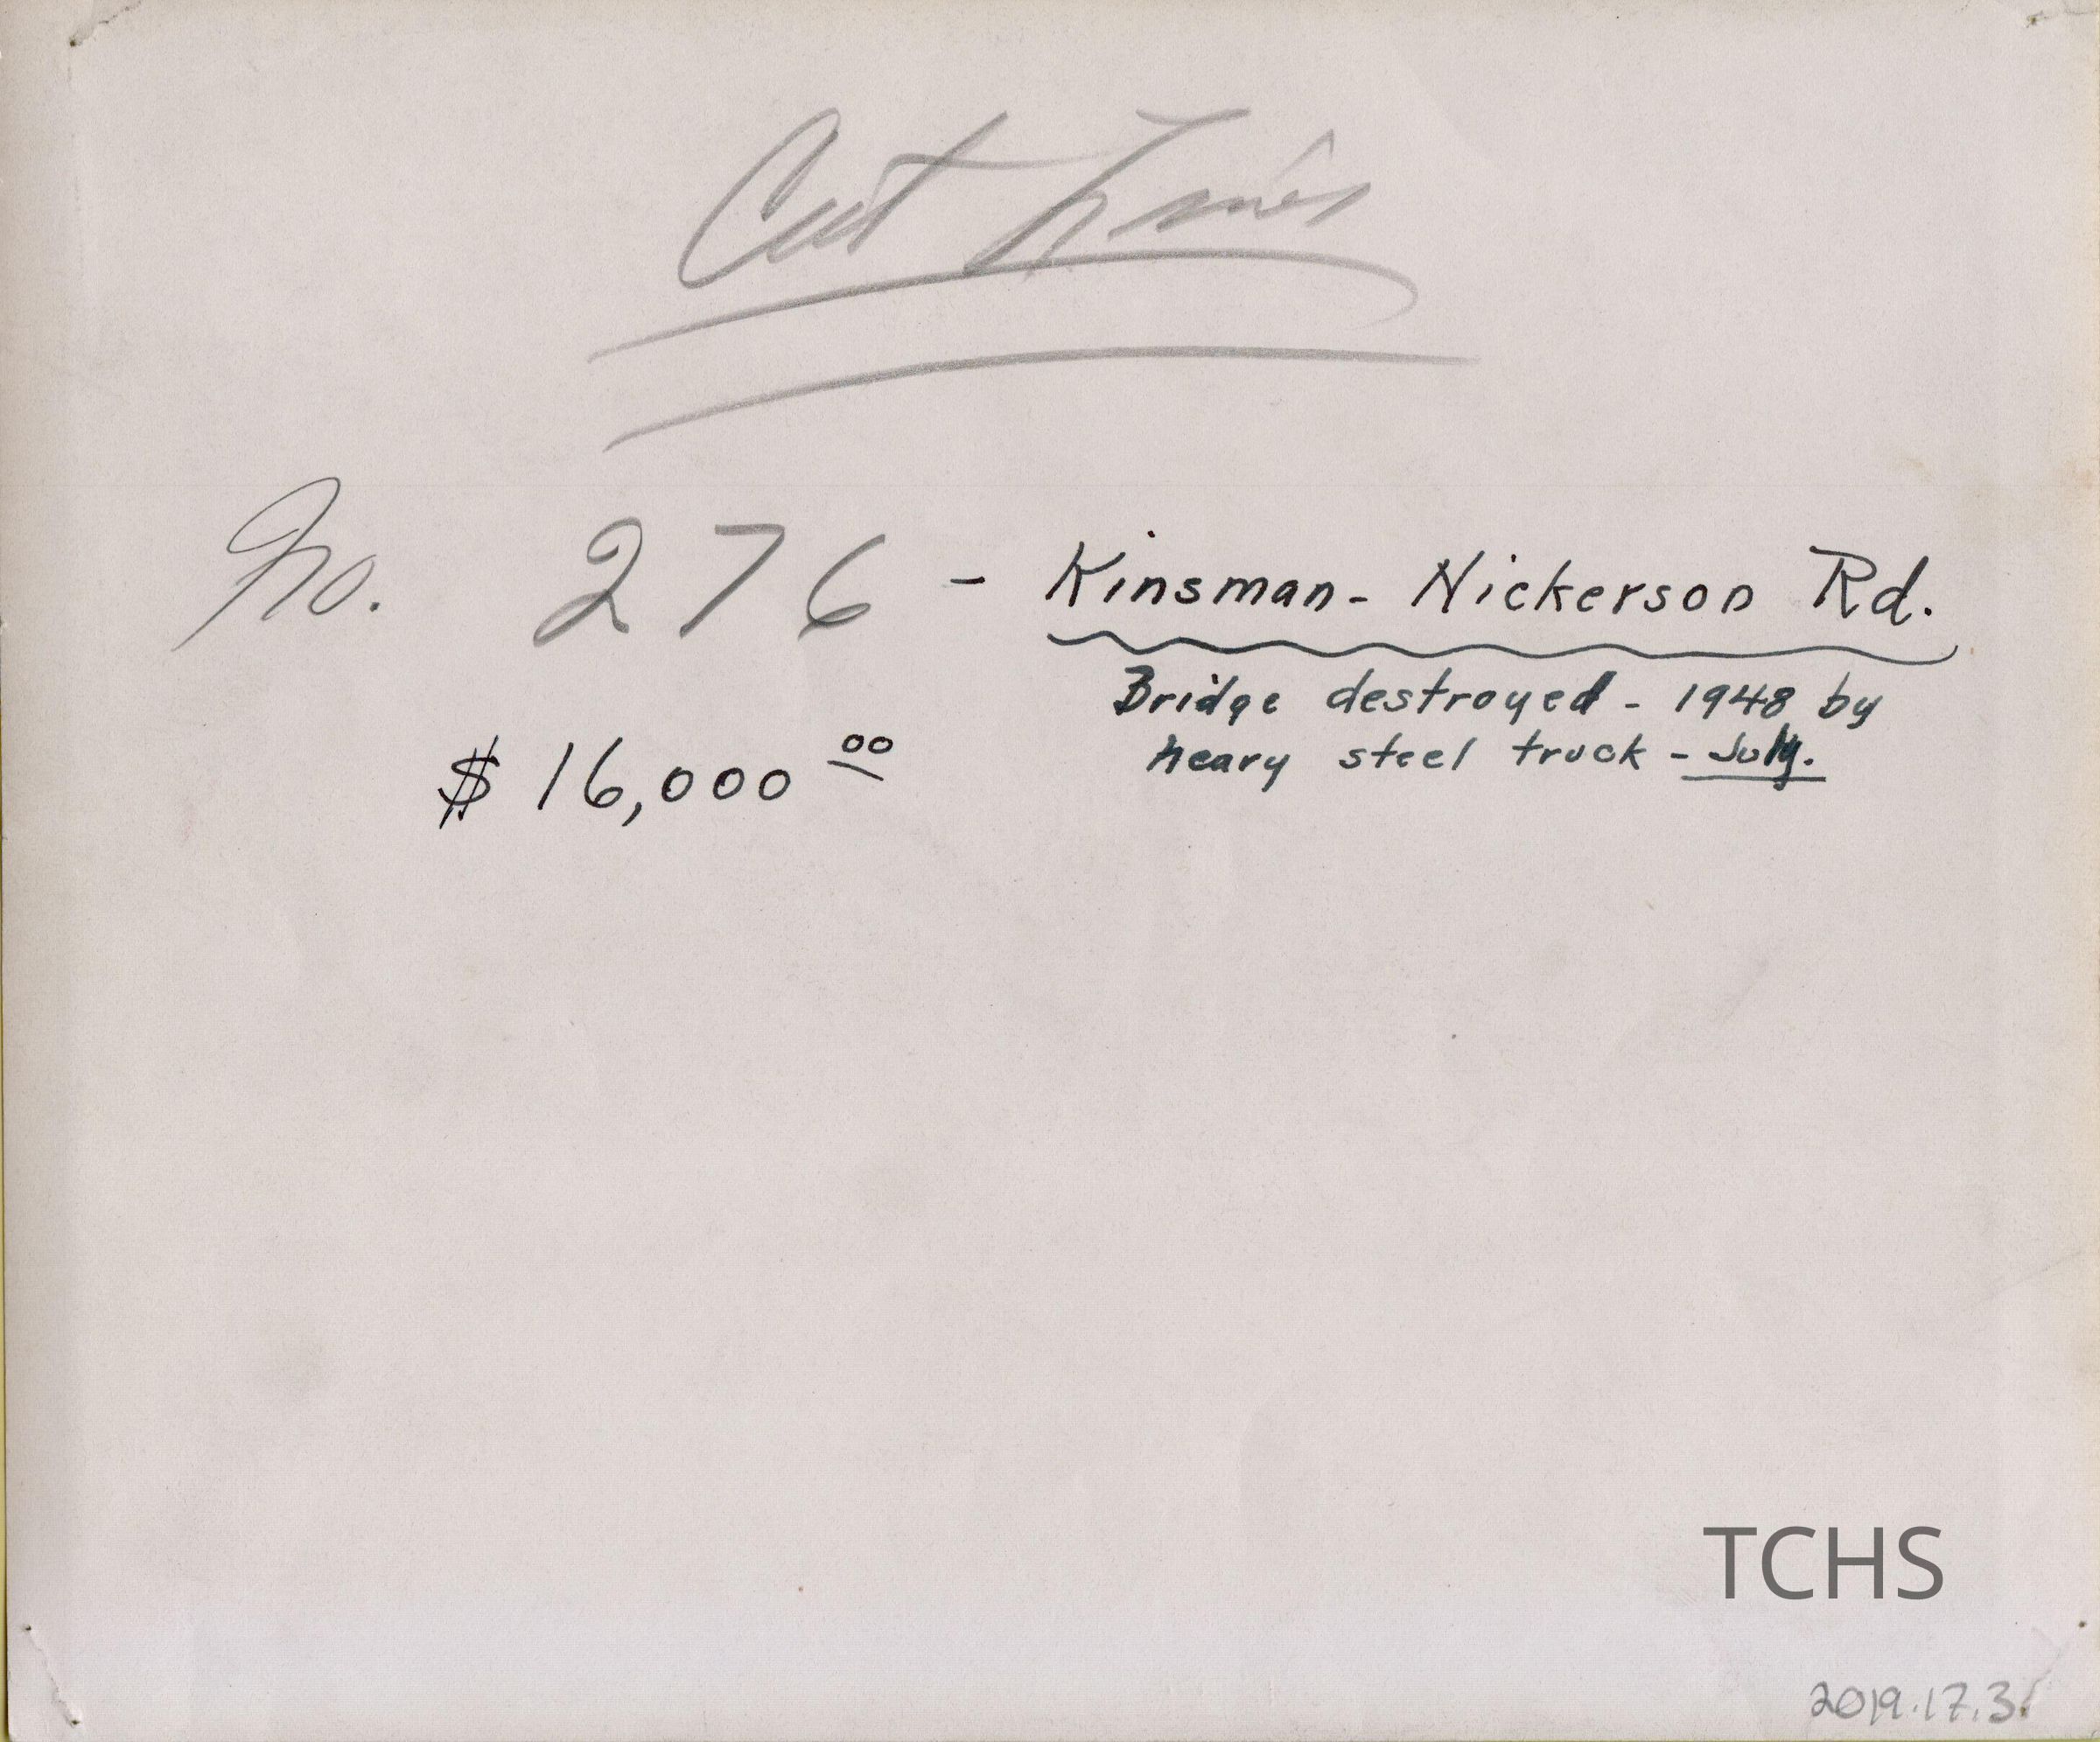 Cut Lines
No. 276 - Kinsman - Nickerson Rd.
Bridge destroyed - 1948 by
heavy steel truck - July.
$16,000 00
TCHS
2019.17.3